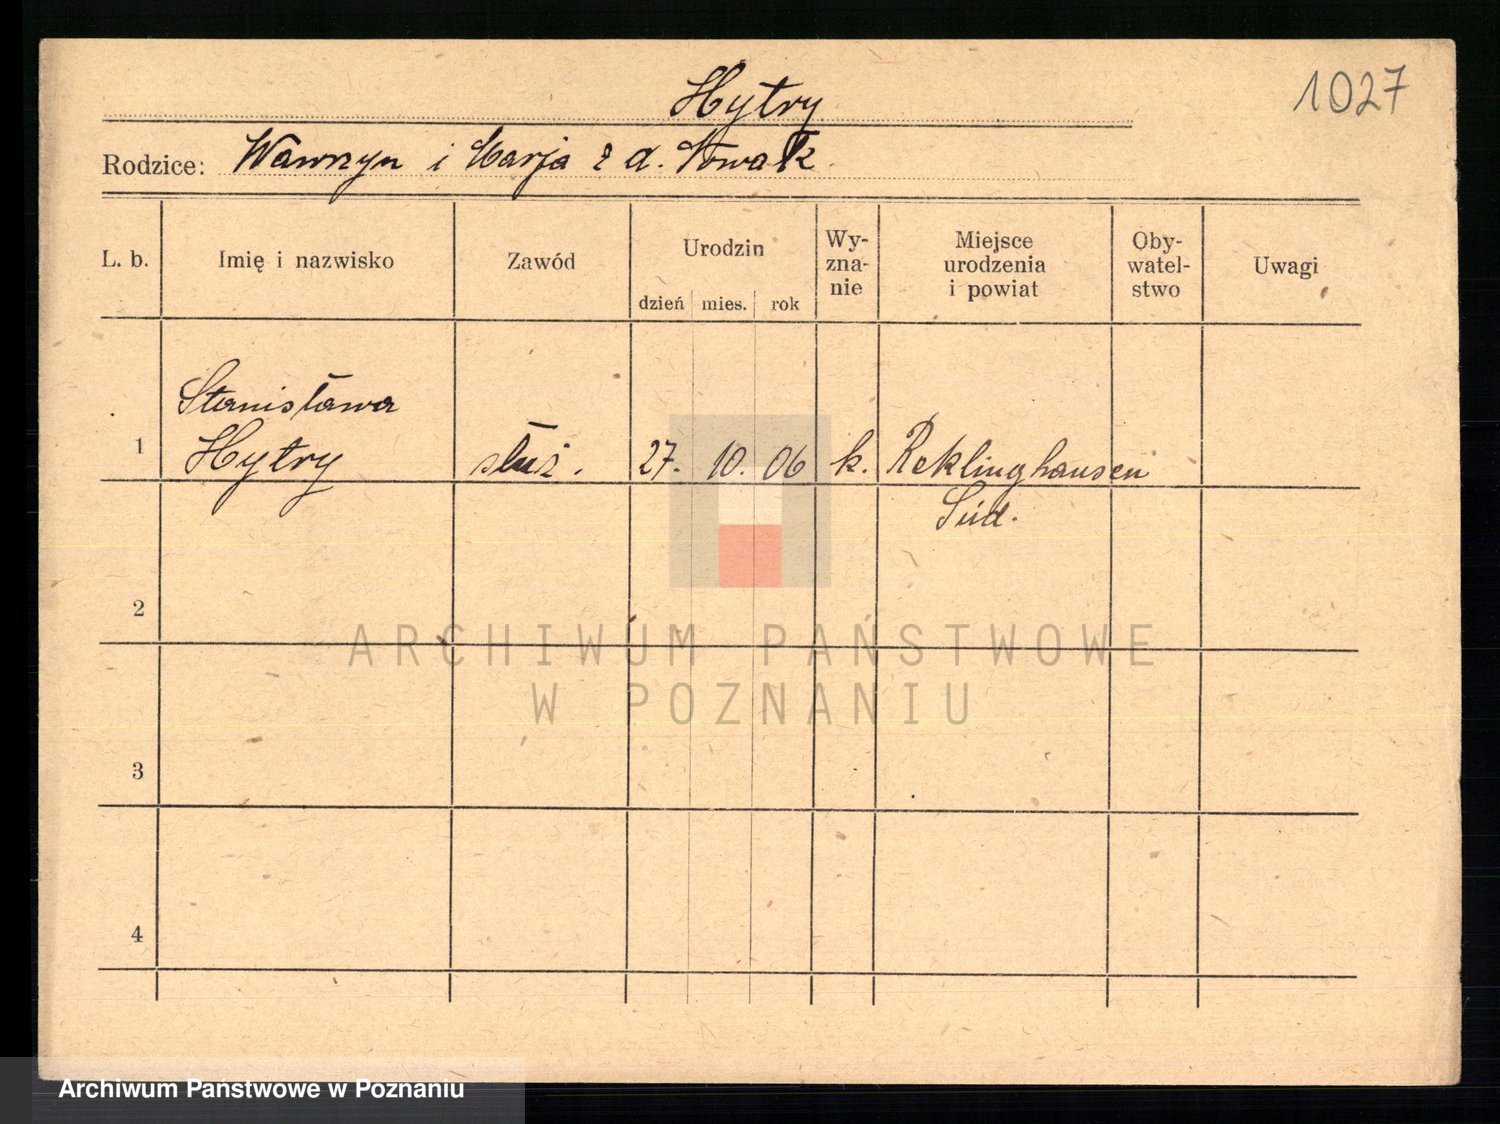 1027
Hytry
Rodzice: Wawrzyn i Marja z d. Nowak.
L. b. Imię i nazwisko Zawód Urodzin dzień mies. rok Wy-zna-nie Miejsce urodzenia i powiat Oby-watel-stwo Uwagi
Stanisława
1 Hytry służ. 27. 10. 06 k. Reklinghausen
Süd.
2
3
4
ARCHIWUM PAŃSTWOWE
W POZNANIU
Archiwum Państwowe w Poznaniu